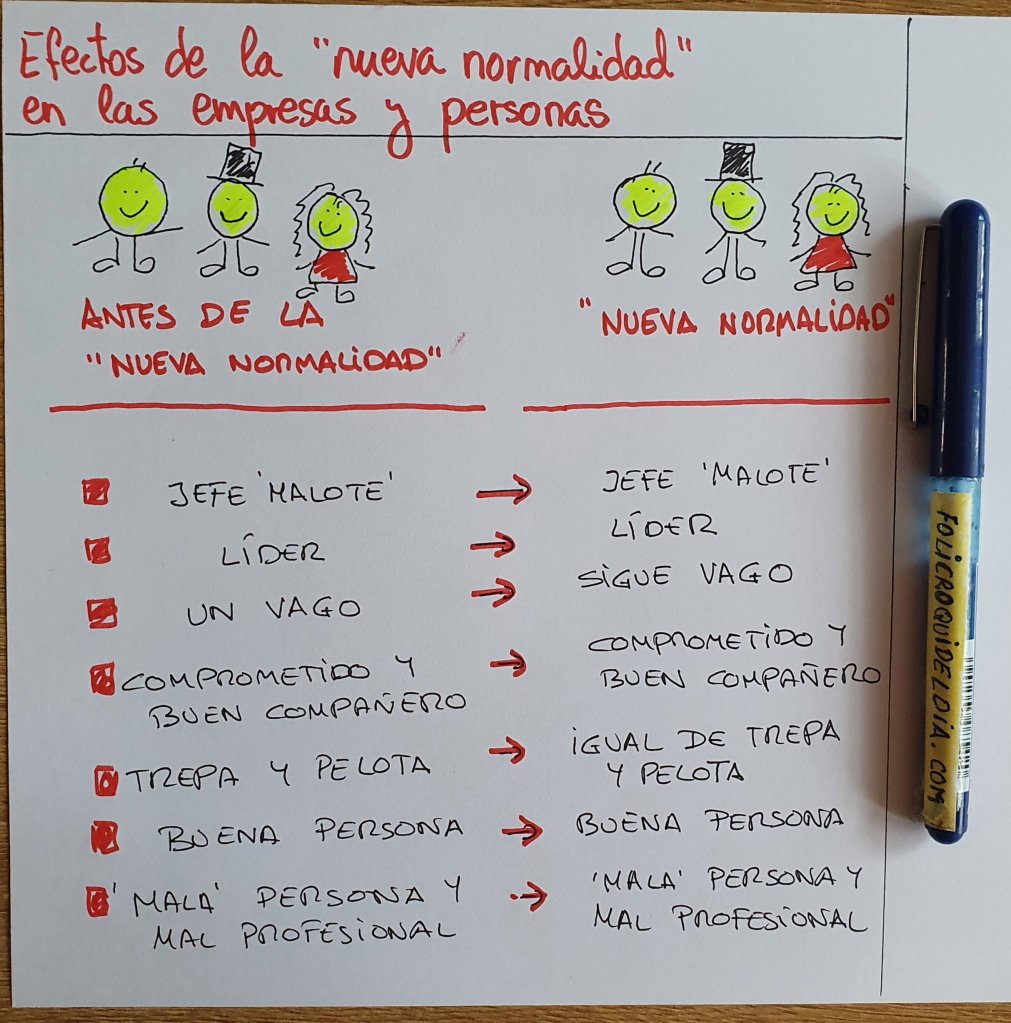 Efectos de la "nueva normalidad"
en las empresas y personas
ANTES DE LA
"NUEVA NORMALIDAD"
"NUEVA NORMALIDAD"
JEFE 'MALOTE' → JEFE 'MALOTE'
LÍDER → LÍDER
UN VAGO → SIGUE VAGO
COMPROMETIDO Y
BUEN COMPAÑERO
→ COMPROMETIDO Y
BUEN COMPAÑERO
TREPA Y PELOTA → IGUAL DE TREPA
Y PELOTA
BUENA PERSONA → BUENA PERSONA
'MALA' PERSONA Y
MAL PROFESIONAL
→ 'MALA' PERSONA Y
MAL PROFESIONAL
FOLICROQUIDELDIA.COM